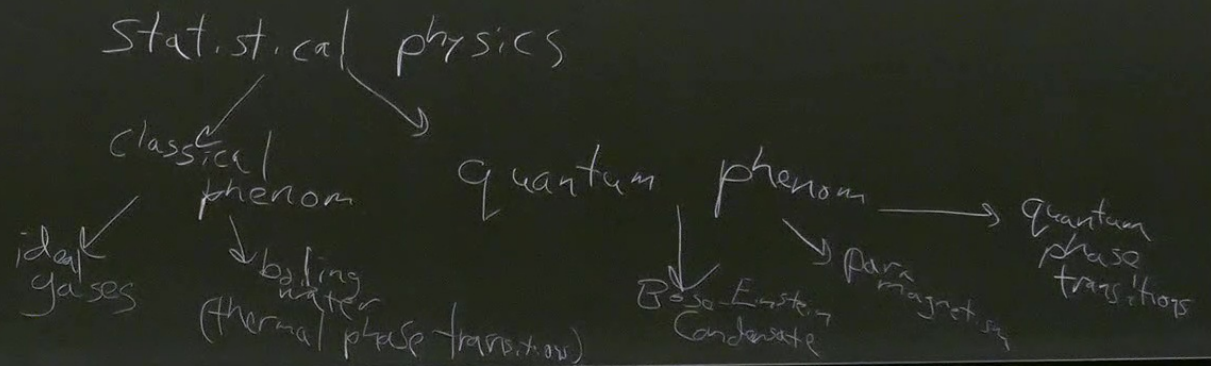 Statistical physics
classical
phenom
quantum phenom
ideal
gases
boiling
water
(thermal phase transitions)
Bose-Einstein
Condensate
para
magnetism
quantum
phase
transitions